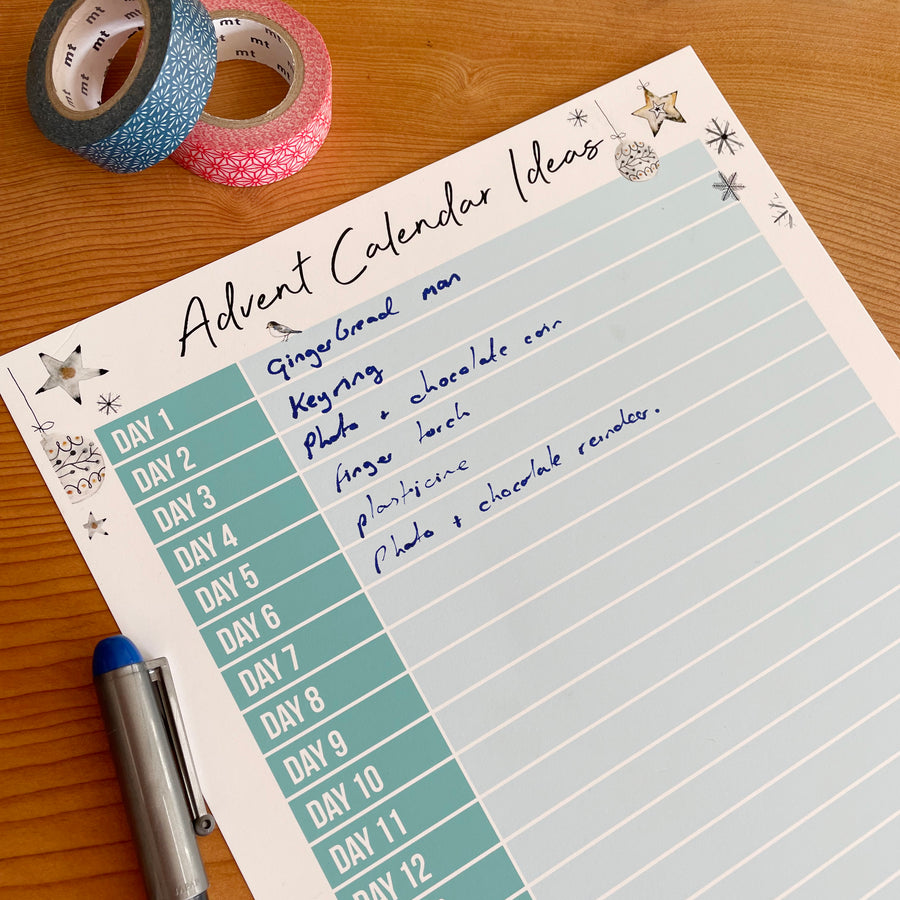 mt mt mt mt
mt mt mt
Advent Calendar Ideas
DAY 1 Gingerbread man
DAY 2 Keyring
DAY 3 Photo + chocolate coin
DAY 4 finger torch
DAY 5 plasticine
DAY 6 Photo + chocolate reindeer.
DAY 7
DAY 8
DAY 9
DAY 10
DAY 11
DAY 12